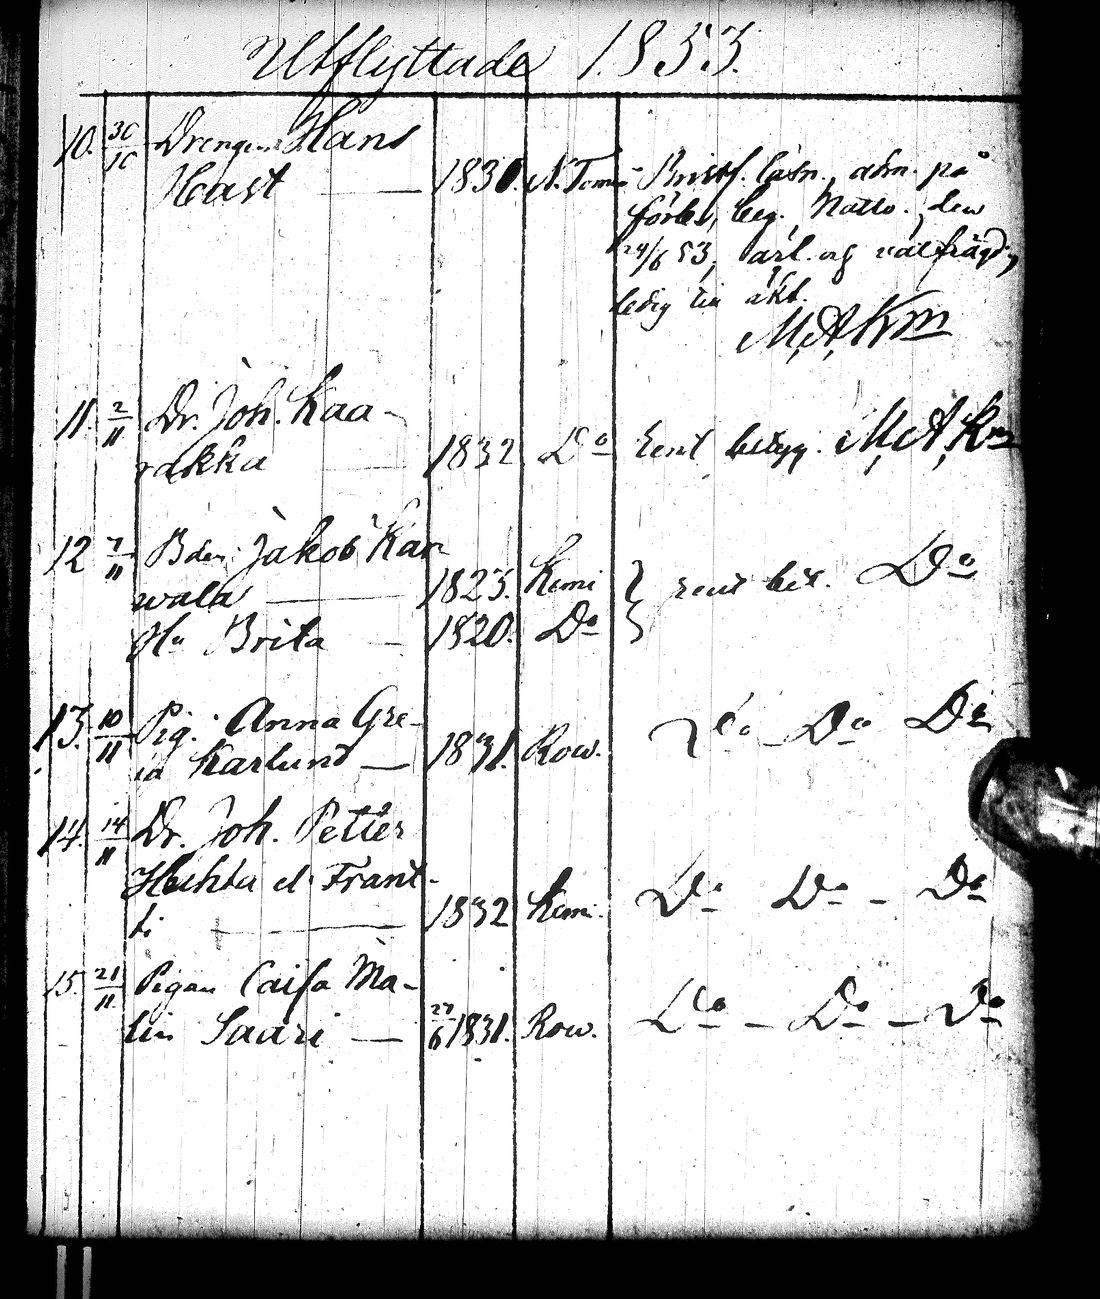 Utflyttade 1853.
10. 30/10 Drengen Hans
Hast — 1830. N. Torneå Bristf. läsn., adm. på
förbs, beg. Nattv. den
24/6 53, ärl. og välfrägdig
ledig till äkt.
M, A, Km
11. 2/11 Dr. Joh. Kaa-
rakka 1832 Do Lent betyg. M, A, Km
12 7/11 Bden Jakob Kar-
wala — 1825. Kemi } rent bet. Do
Hu Brita — 1820. Do
13. 10/11 Pig. Anna Gre-
ta Karlund — 1831. Row. Do - Do Do
14. 14/11 Dr. Joh. Petter
Huhta el. Frant-
ti — 1832 Kemi. Do Do - Do
15. 21/11 Pigan Caisa Ma-
lin Saari — 27/6 1831. Row. Do - Do - Do